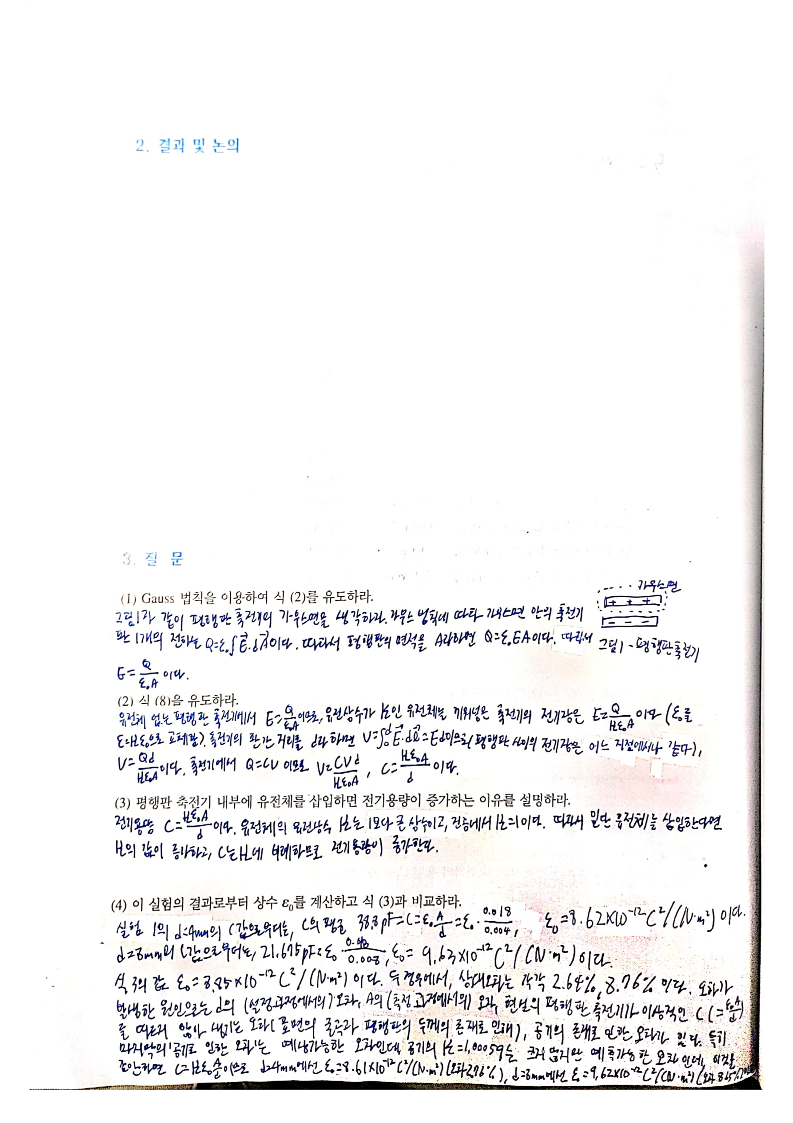 2. 결과 및 논의
3. 질 문
(1) Gauss 법칙을 이용하여 식 (2)를 유도하라.
가우스면
그림1과 같이 평행판 축전기의 가우스면을 생각하자. 가우스 법칙에 따라 가우스면 안의 축전기
판 1개의 전하는 Q=ε₀∫E·dA이다. 따라서 평행판의 면적을 A라하면 Q=ε₀EA이다. 따라서
그림1 - 평행판축전기
E=Q/ε₀A 이다.
(2) 식 (8)을 유도하라.
유전체 없는 평행판 축전기에서 E=Q/ε₀A이므로, 유전상수가 κ인 유전체를 끼워넣은 축전기의 전기장은 E=Q/κε₀A 이다 (ε₀를
ε=κε₀으로 교체함). 축전기의 판간 거리를 d라 하면 V=∫₀ᵈE·dl=Ed이므로(평행판 사이의 전기장은 어느 지점에서나 같다),
V=Qd/κε₀A이다. 축전기에서 Q=CV 이므로 V=CVd/κε₀A, C=κε₀A/d 이다.
(3) 평행판 축전기 내부에 유전체를 삽입하면 전기용량이 증가하는 이유를 설명하라.
전기용량 C=κε₀A/d이다. 유전체의 유전상수 κ는 1보다 큰 상수이고, 진공에서 κ=1이다. 따라서 만일 유전체를 삽입한다면
κ의 값이 증가하고, C는 κ에 비례하므로 전기용량이 증가한다.
(4) 이 실험의 결과로부터 상수 ε₀를 계산하고 식 (3)과 비교하라.
실험 1의 d=4mm의 C값으로부터는, C의 평균 38.8pF=C=ε₀A/d=ε₀·0.018/0.004, ε₀=8.62×10⁻¹²C²/(N·m²) 이다.
d=8mm의 C값으로부터는, 21.675pF=ε₀ 0.018/0.008, ε₀=9.63×10⁻¹²C²/(N·m²)이다.
식 3의 값 ε₀=8.85×10⁻¹²C²/(N·m²) 이다. 두 경우에서, 상대오차는 각각 2.64%, 8.76% 이다. 오차가
발생한 원인으로는 d의 (설정과정에서의) 오차, A의 (측정과정에서의) 오차, 현실의 평행판 축전기가 이상적인 C(=ε₀A/d)
를 따르지 않아 생기는 오차(표면의 굴곡과 평행판의 두께의 존재로 인해), 공기의 존재로 인한 오차가 있다. 특히
마지막의 '공기로 인한 오차'는 예상가능한 오차인데, 공기의 κ=1.00059는 크지 않지만 예측가능한 오차인데, 이것을
감안하면 C=κε₀A/d이므로 d=4mm에선 ε₀=8.61×10⁻¹²C²/(N·m²)(오차2.96%), d=8mm에선 ε₀=9.62×10⁻¹²C²/(N·m²)